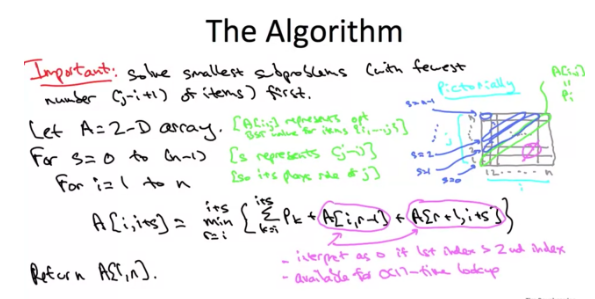 The Algorithm
Important: solve smallest subproblems (with fewest
number (j-i+1) of items) first.
Let A = 2-D array. [A[i,j] represents opt
BST value for items {i,...,j}]
For s=0 to (n-1) [s represents (j-i)]
For i=1 to n [so i+s plays role of j]
A[i,i+s] = min_{r=i}^{i+s} { Σ_{k=i}^{i+s} Pk + A[i,r-1] + A[r+1,i+s] }
- interpret as 0 if 1st index > 2nd index
- available for O(1)-time lookup
Return A[1,n].
Pictorially
A[i,i]
=
Pi
s=n-1
j
s=2
s=1
s=0
1 2 ...... n
i